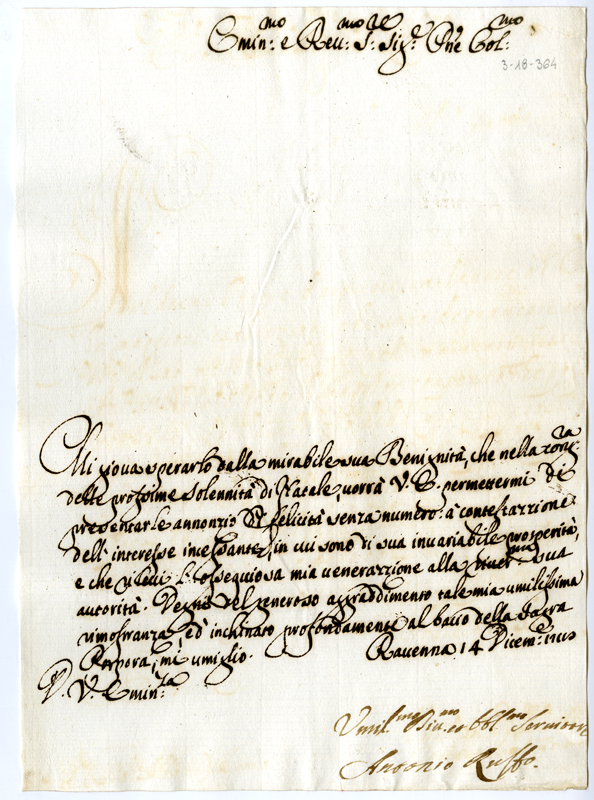 Emin:mo e Reu:mo S:re Sig:r Prne Col:mo
3-18-364
Mi gioua sperarlo dalla mirabile sua Benignità, che nella
delle prossime solennità di Natale uorrà V. E. permettermi di
presentarle annonzio di felicità senza numero: à contestazione
dell'interesse incessante, in cui sono di sua inuariabile prosperità,
e che l'ossequiosa mia venerazione alla sua
autorità. Degni del generoso aggradimento tale mia umilissima
rimostranza, ed inchinato profondamente al bacio della Sagra
Porpora, mi umiglio.
Rauenna 14 Dicem:e
D. V. Emin:za
Vmil:mo Diu:mo ed Obbl:mo Seruitore
Antonio Ruffo.